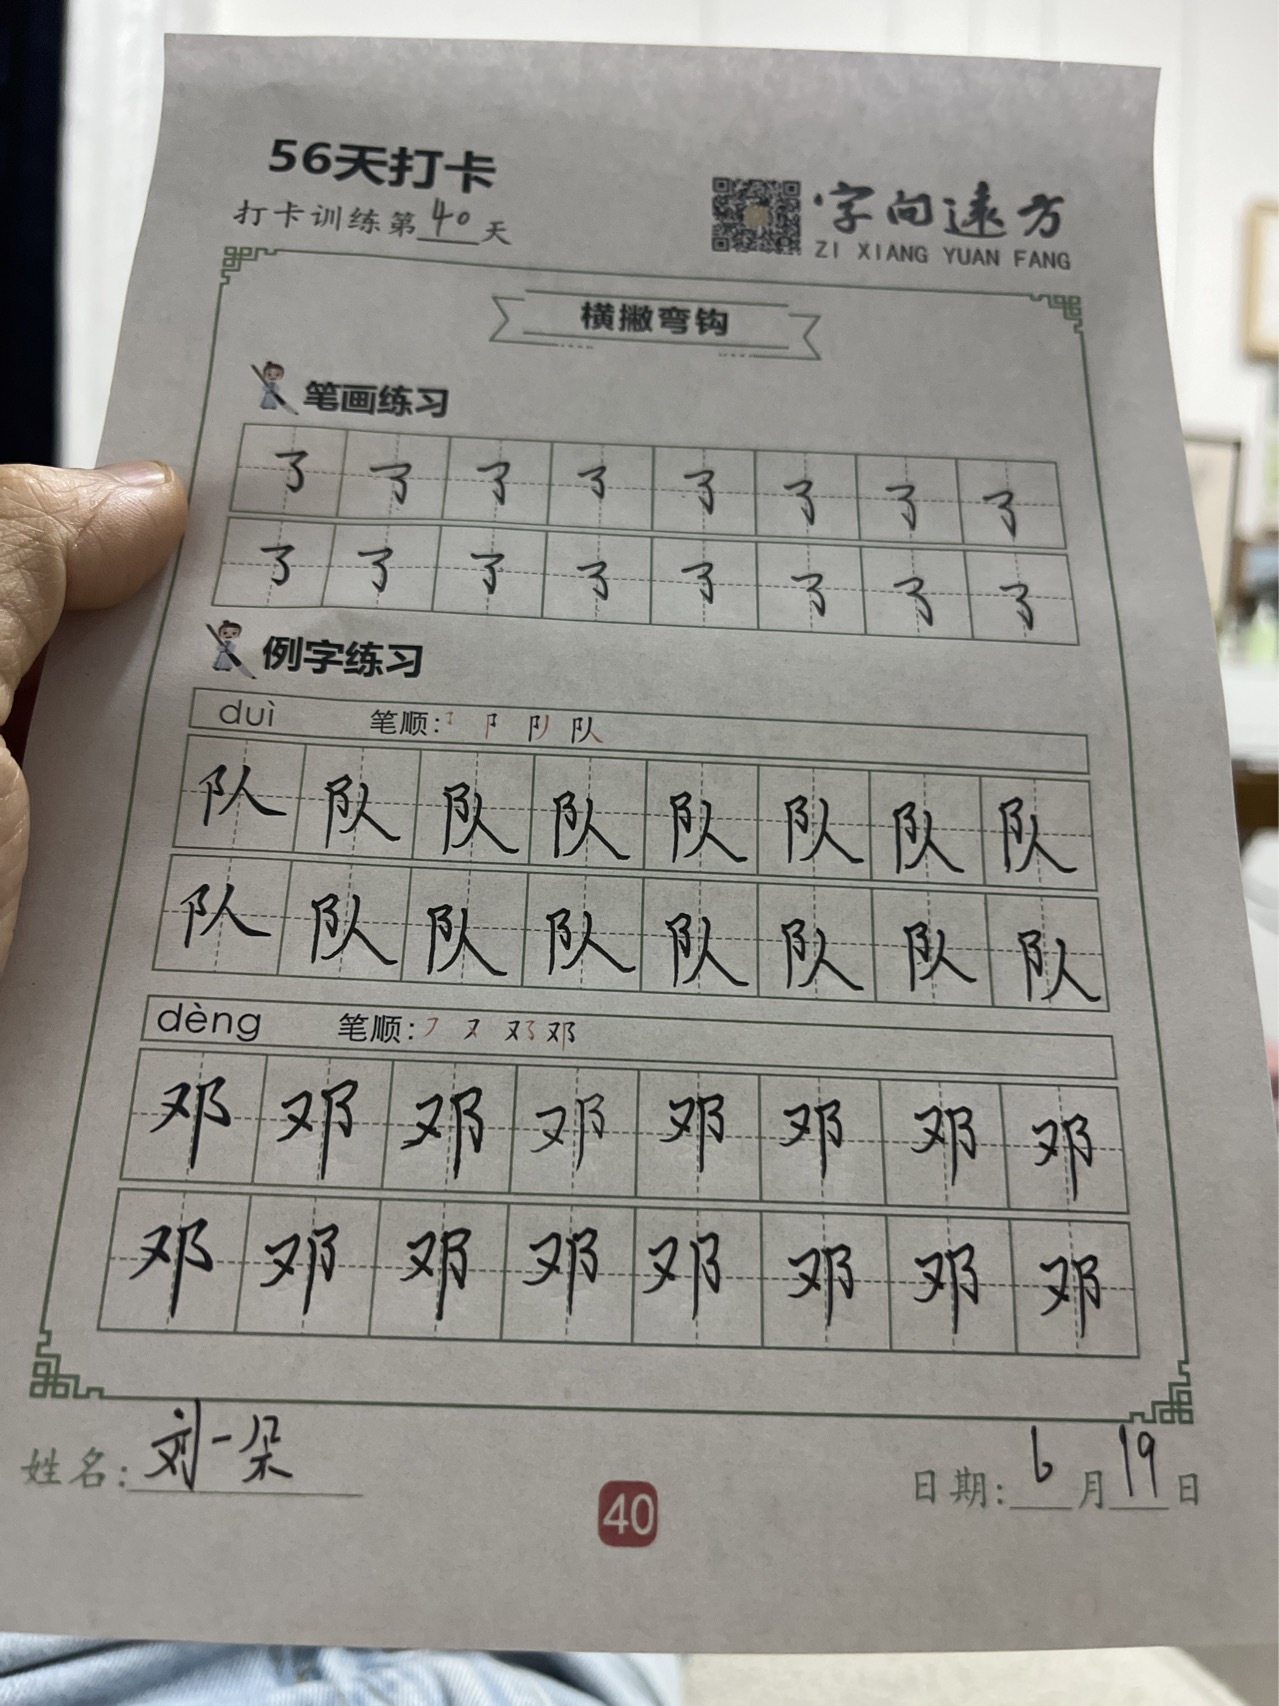 56天打卡
打卡训练第40天
字向远方
ZI XIANG YUAN FANG
横撇弯钩
笔画练习
㇌ ㇌ ㇌ ㇌ ㇌ ㇌ ㇌ ㇌
㇌ ㇌ ㇌ ㇌ ㇌ ㇌ ㇌ ㇌
例字练习
duì 笔顺: ㇌ 阝 队 队
队 队 队 队 队 队 队 队
队 队 队 队 队 队 队 队
dèng 笔顺: ㇇ 又 邓 邓
邓 邓 邓 邓 邓 邓 邓 邓
邓 邓 邓 邓 邓 邓 邓 邓
姓名:刘一朵
40
日期:6月19日